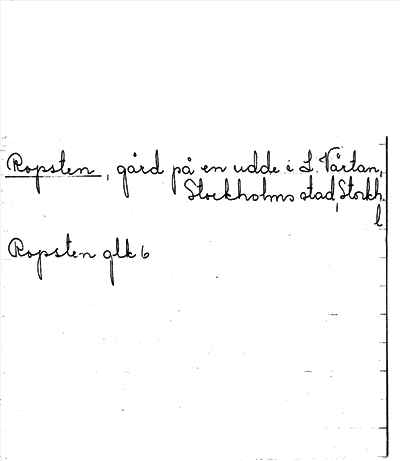 Ropsten, gård på en udde i L. Värtan,
Stockholms stad, Stockh.
l
Ropsten glk 6